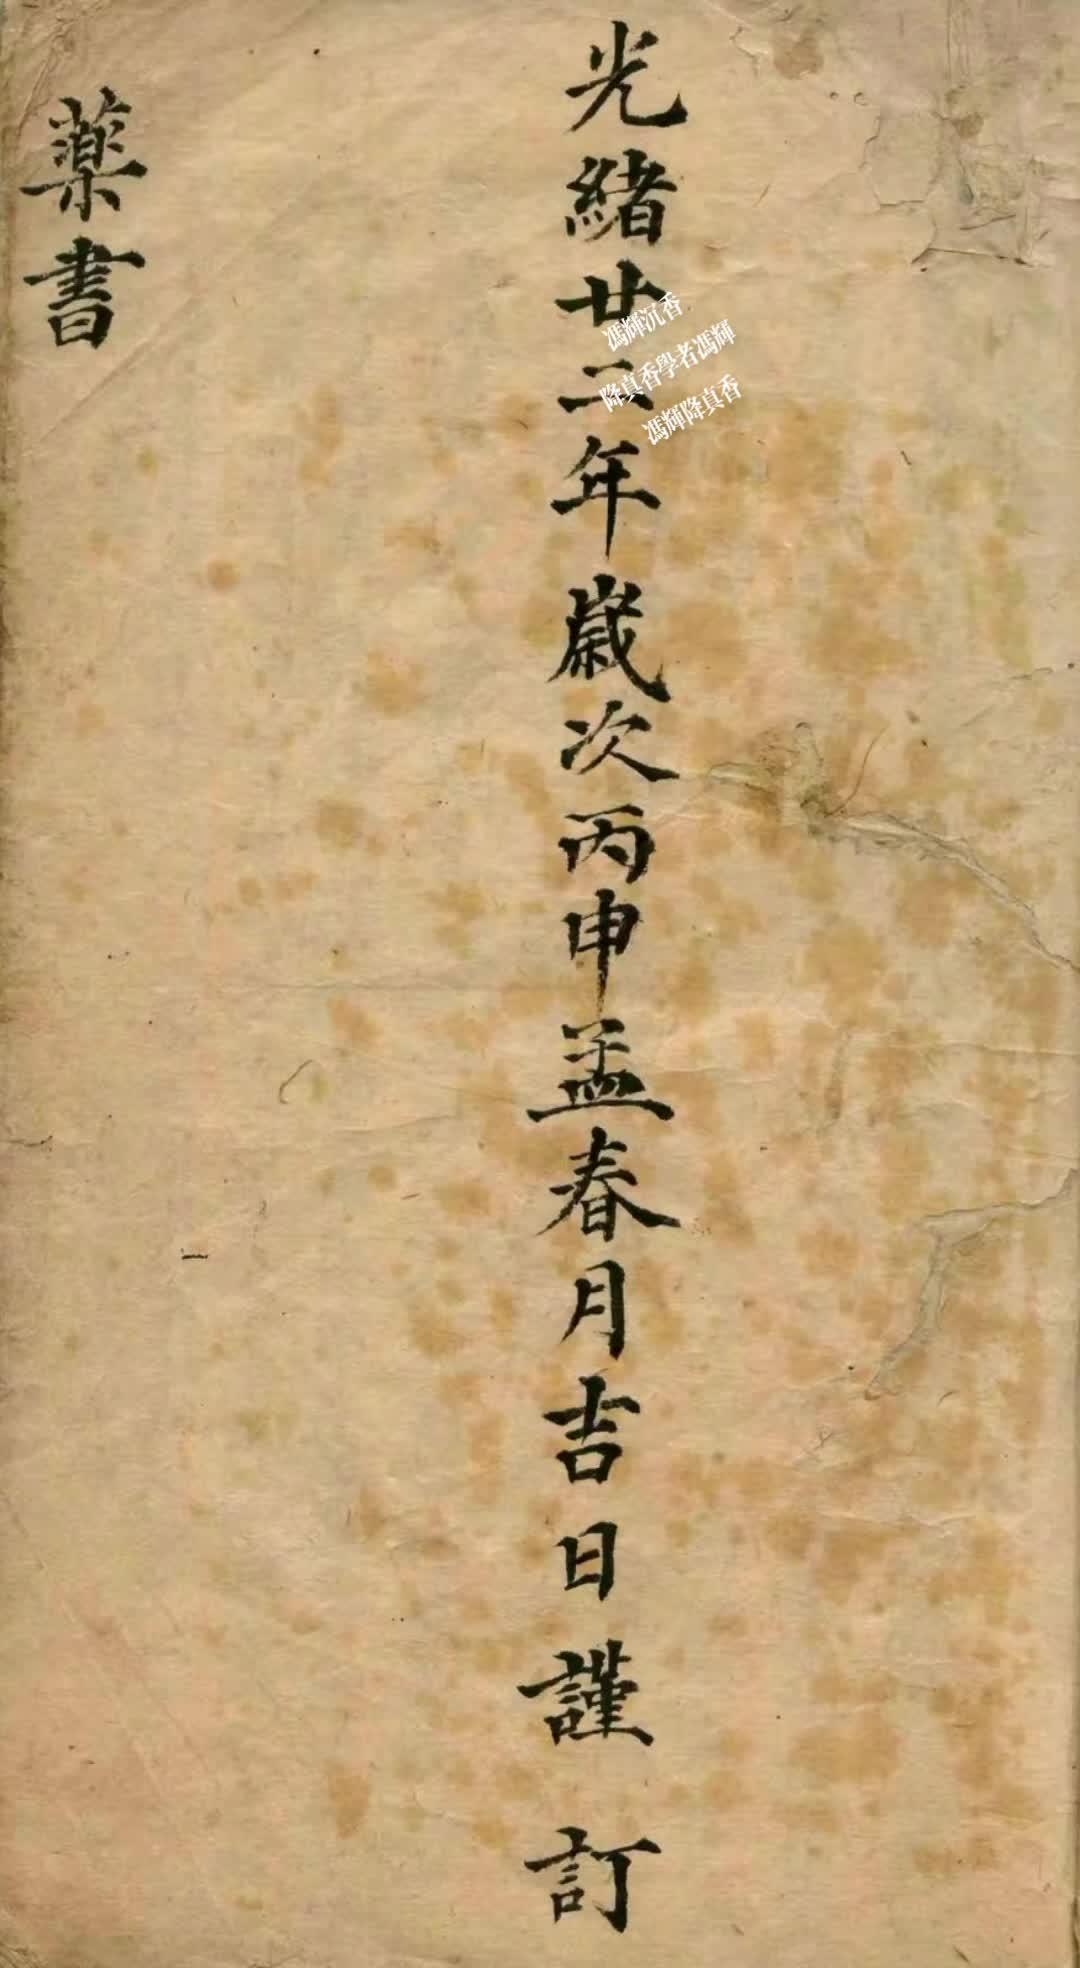 光緒廿二年歲次丙申孟春月吉日謹訂
藥書
馮輝沉香
降真香學者馮輝
馮輝降真香